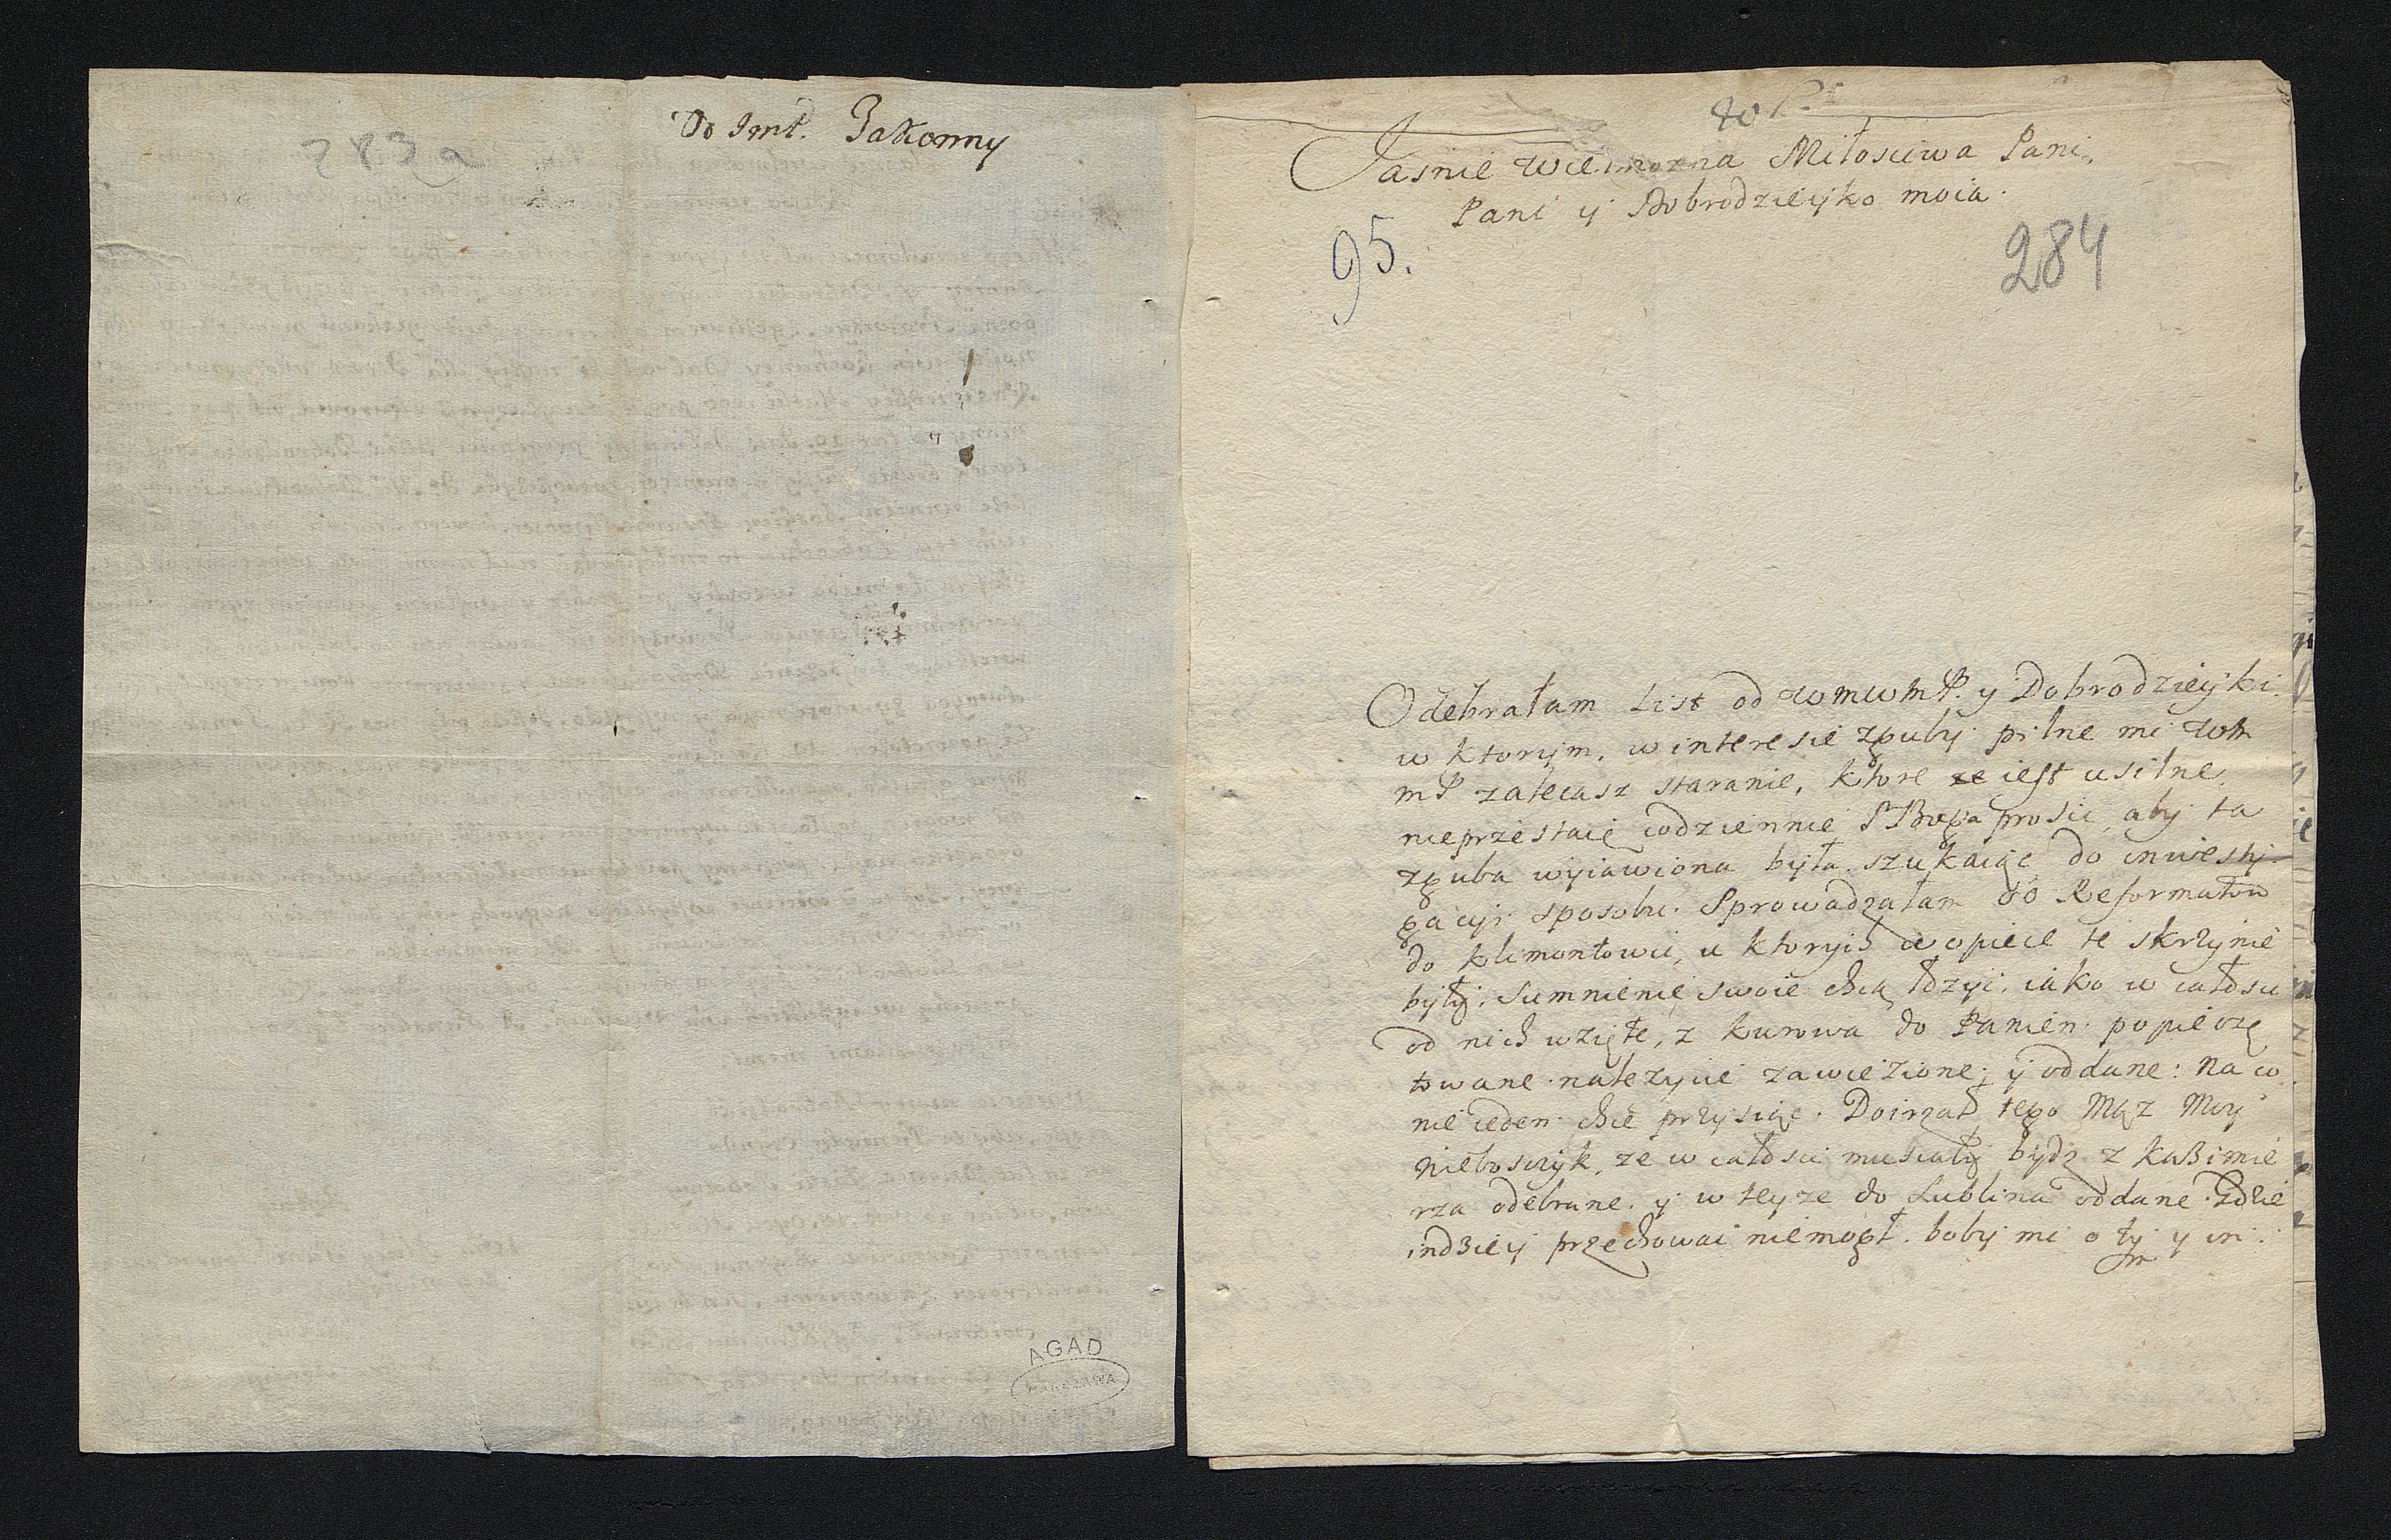 283a
Do Jmć. Zakonny
Jasnie Wielmozna Miłosciwa Pani,
Pani y Dobrodzieyko moia.
95.
284
Odebrałam List od WMWMP. y Dobrodzieyki.
w ktorym, w interesie zguby pilne mi WM
MP zalecasz staranie, ktore ze iest usilne,
nieprzestaię codziennie P Boga prosic, aby ta
zguba wyiawiona była. szukaiąc do inwesty-
gacyi sposobu. Sprowadzałam OO Reformatow
do klimontowa, u ktorych w opiece te skrzynie
były, Sumnienie swoie chcą łdzyć, iako w całosci
od nich wzięte, z kurowa do Panien popieczę
towane nalezycie zawiezione, y oddane: na co
nie ieden chce przysiąc. Doirzał tego Mąz Moy
nieboszczyk, ze w całosci musiały bydz z kazimie
rza odebrane, y w teyze do Lublina oddane. Gdzie
indziey przechować niemogł. boby mi o tym y in:
AGAD
WARSZAWA